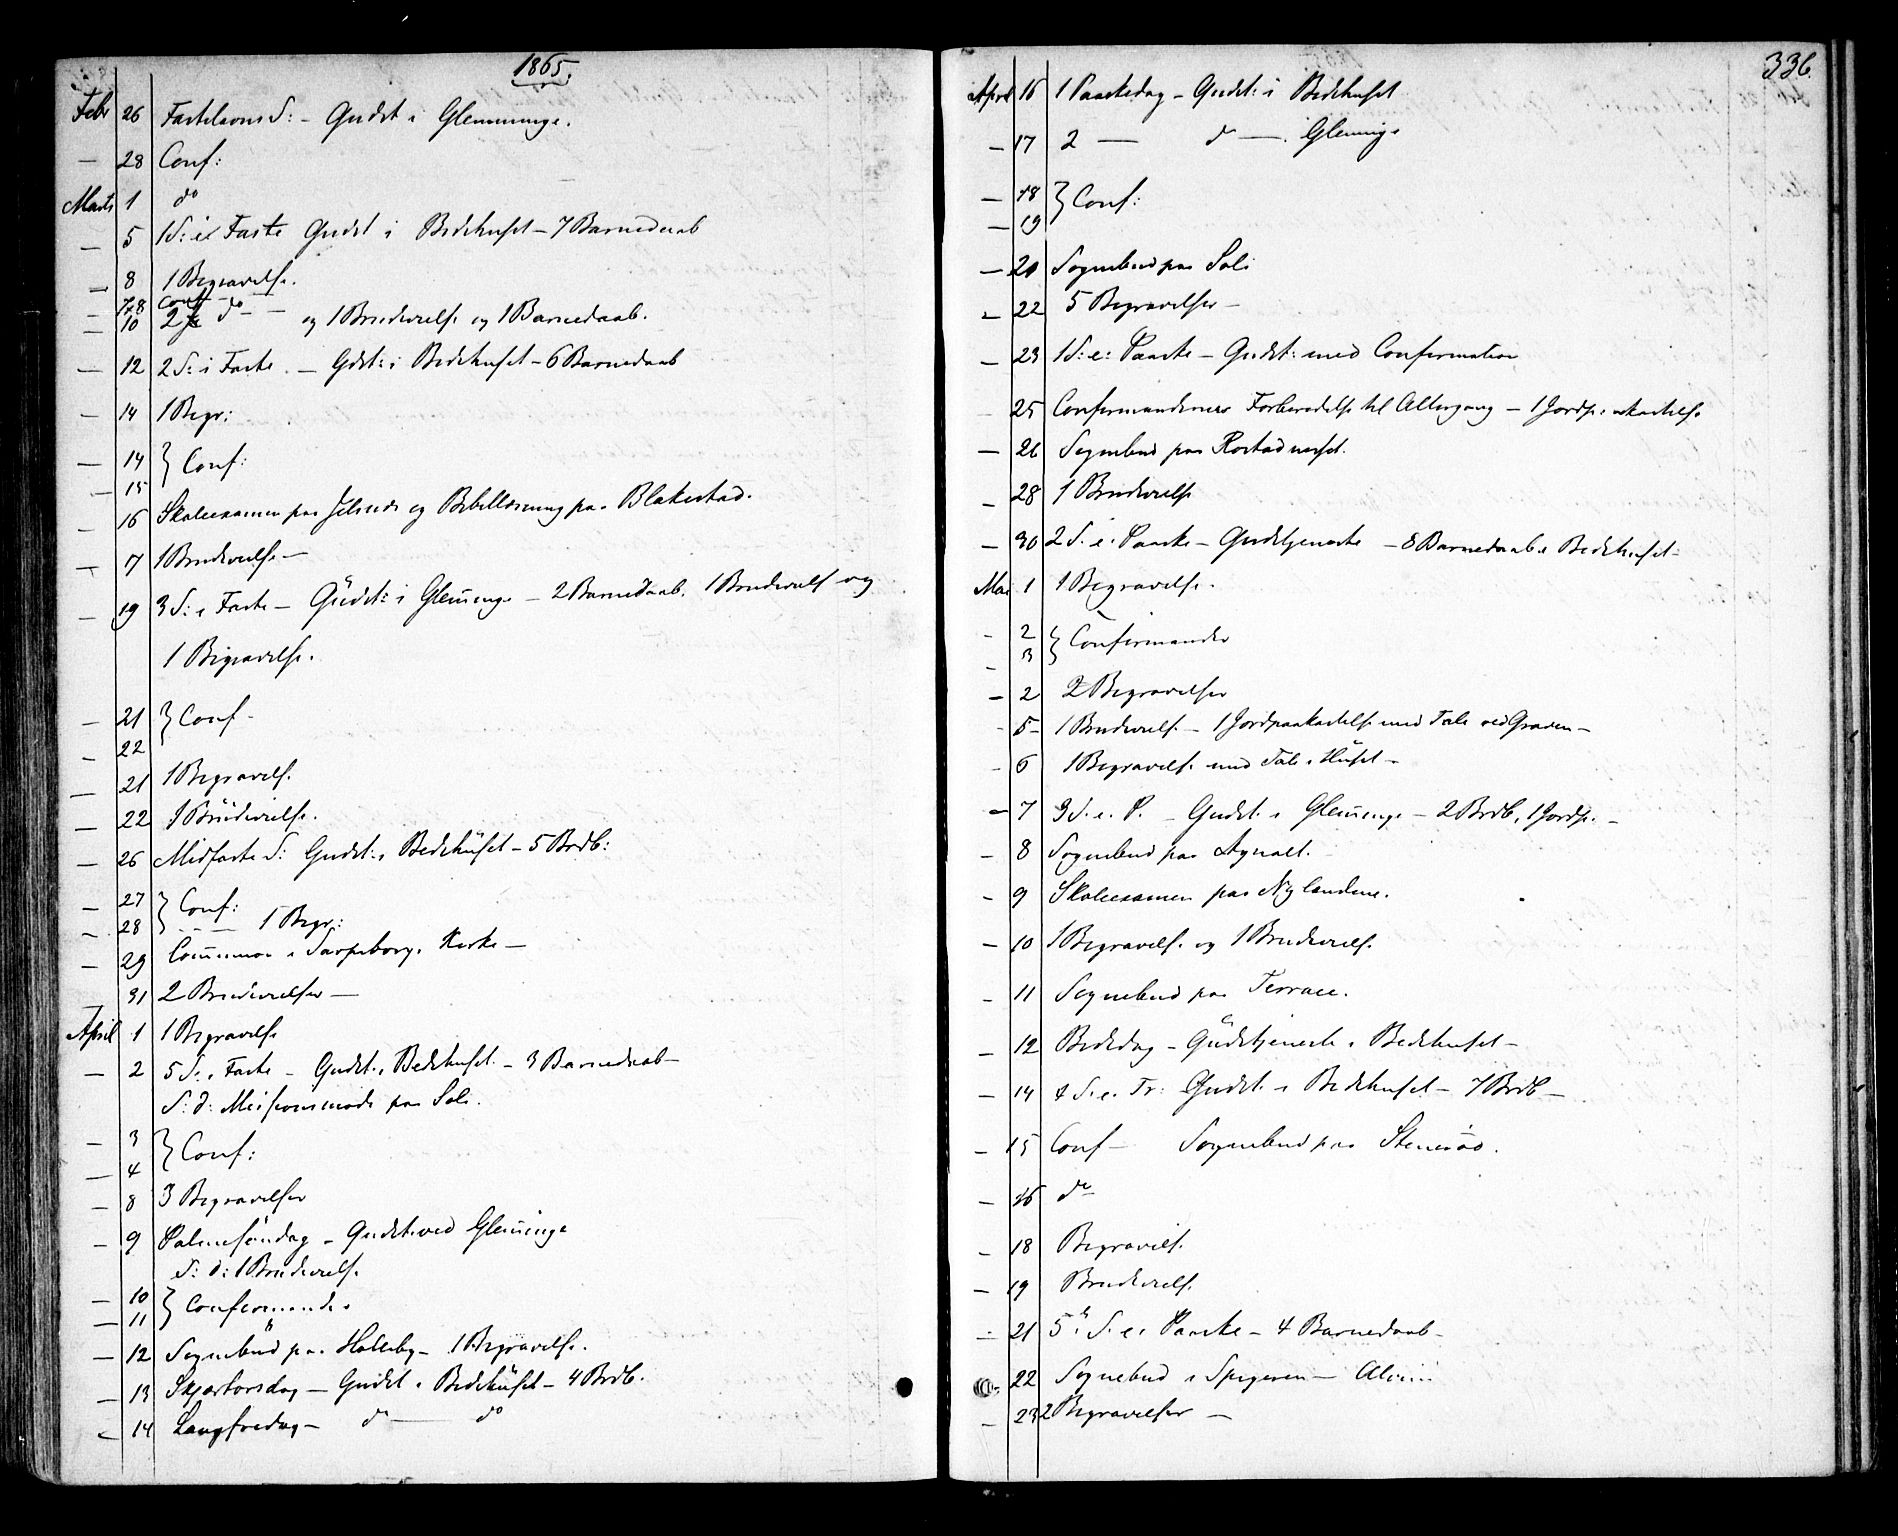 1865.
Febr 26 Fastelavns S: - Gudst i Glemminge.
— 28 Conf:
Marts 1 do
— 5 1 S: i Faste Gudst i Bedehuset - 7 Barnedaab
— 8 1 Begravelse.
— 7.8 Conf
— 10 2 do — og 1 Brudevielse og 1 Barnedaab.
— 12 2 S: i Faste. — Gdst: i Bedehuset - 6 Barnedaab
— 14 1 Begr:
— 14 } Conf:
— 15
— 16 Skoleexamen paa og Bibellæsning paa Blakestad.
— 17 1 Brudevielse —
— 19 3 S: i Faste — Gudst: i Glem̅inge — 2 Barnedaab. 1 Brudevielse og
1 Begravelse.
— 21 } Conf -
— 22
— 21 1 Begravelse.
— 22 1 Brudevielse.
— 26 Midfaste S: Gudst: i Bedehuset - 5 Brdb:
— 27 } Conf:
— 28 - - - 1 Begr:
— 29 i Sarpsborg Kirke —
31 2 Brudevielser —
April 1 1 Begravelse
— 2 5 S: i Faste - Gudst. i Bedehuset - 3 Barnedaab —
S: d: Missionsmøde paa Soli.
— 3 } Conf:
— 4
— 8 3 Begravelser
— 9 Palmesøndag - Gudst: ved Glem̅inge
S: d: 1 Brudevielse.
— 10 } Confirmander
— 11
— 12 Sognebud paa Holleby - 1 Begravelse.
— 13 Skjærtorsdag — Gudst i Bedehuset - 4 Brdb.
— 14 Langfredag - do — do
336.
April 16 1 Paaskedag - Gudst: i Bedehuset
— 17 2 — do — i Glem̅inge
— 18 } Conf:
— 19
— 20 Sognebud paa Soli
— 22 5 Begravelser —
— 23 1 S: e: Paaske - Gudst: med Confirmation
25 Confirmandernes Forberedelse til Altergang — 1 Jordp:
— 26 Sognebud paa
— 28 1 Brudevielse
— 30 2 S. e. Paaske - Gudstjeneste - 8 Barnedaab i Bedehuset -
Mai 1 1 Begravelse.
- 2 } Confirmander
- 3
— 2 2 Begravelser
- 5 - 1 Brudevielse - 1 Jordpaakastelse med Tale ved Graven —
- 6 1 Begravelse med Tale i Huset —
— 7 3 S. e. P. - Gudst. i Glem̅inge - 2 Brdb, 1 Jordp. -
- 8 Sognebud paa Agnalt.
- 9 Skoleexamen paa Nylandene.
— 10 1 Begravelse og 1 Brudevielse.
- 11 Sognebud paa Terrace.
— 12 Bededag - Gudstjeneste i Bedehuset —
— 14 4 S. e. Gudst. i Bedehuset - 7 Brdb —
— 15 Conf — Sognebud paa Stensrød.
— 16 do
— 18 Begravelse.
— 19 Brudevielse.
— 21 5. S. e. Paaske - 4 Barnedaab -
22 Sognebud i Spigeren —
- 23 2 Begravelser —